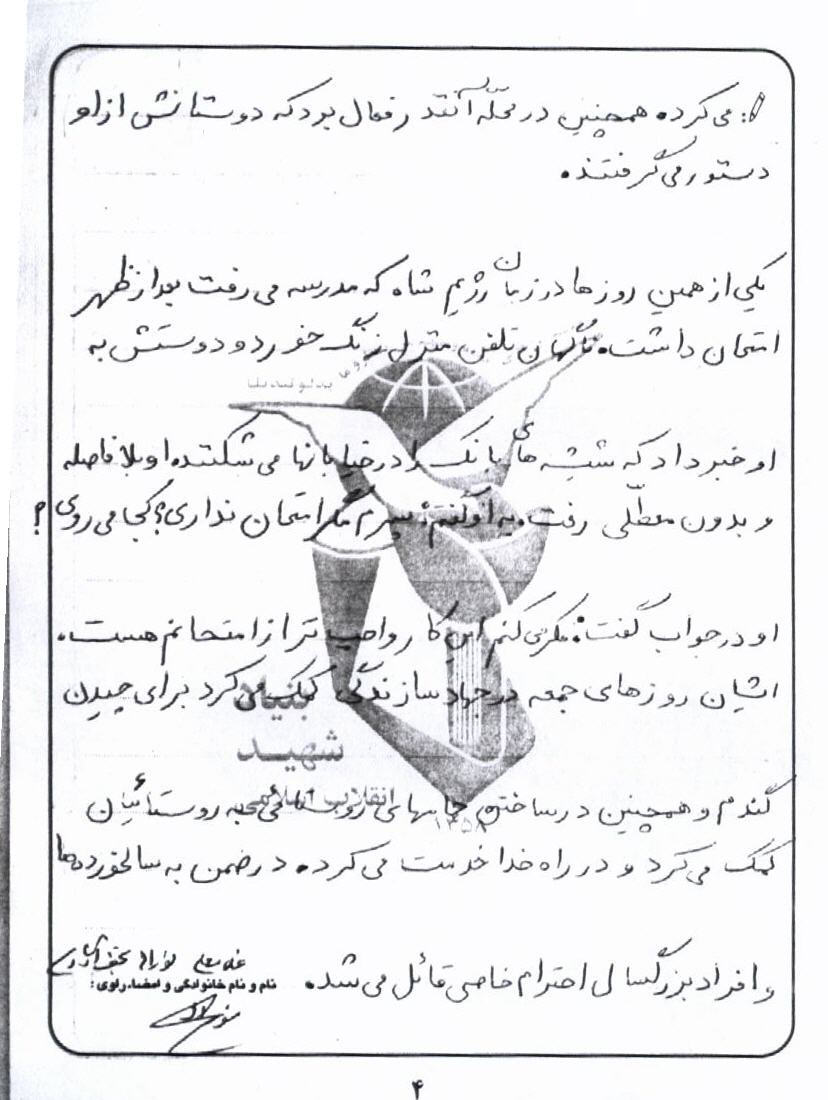 می‌کرده همچنین در محلّه آنقدر فعال بود که دوستانش از او
دستور می‌گرفتند.
یکی از همین روزها در زمان رژیم شاه که مدرسه می‌رفت بعد از ظهر
امتحان داشت. ناگهان تلفن منزل زنگ خورد و دوستش به
او خبر داد که شیشه‌های بانک را در خیابانها می‌شکنند. او بلافاصله
و بدون معطّلی رفت. به او گفتم: پسرم مگر امتحان نداری؟ کجا می‌روی؟
او در جواب گفت: فکر می‌کنم این کار واجب تر از امتحانم هست.
ایشان روزهای جمعه در جهاد سازندگی کمک می‌کرد برای چیدن
گندم و همچنین در ساختن حمامهای روستائی به روستائیان
کمک می‌کرد و در راه خدا خدمت می‌کرده. در ضمن به سالخورده‌ها
و افراد بزرگسال احترام خاصی قائل می‌شد.
نام و نام خانوادگی و امضاء راوی:
بنیاد
شهید
انقلاب اسلامی
۱۳۵۸
۴